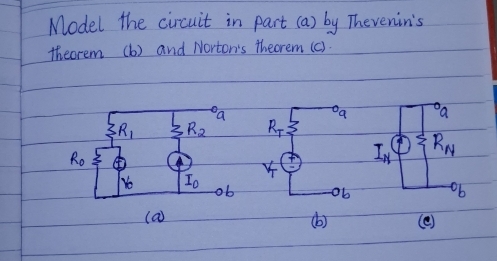 Model the circuit in part (a) by Thevenin's
theorem (b) and Norton's theorem (c).
a
R1
R2
R0
V0
I0
b
(a)
a
RT
VT
b
(b)
a
IN
RN
b
(c)